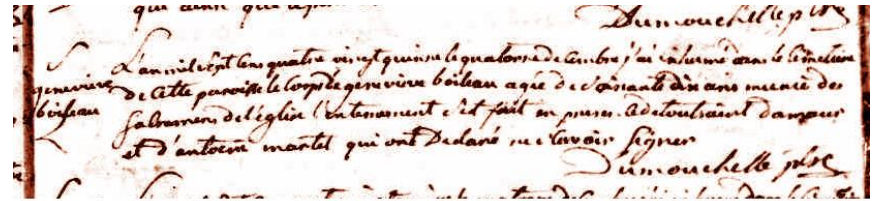 qui ainsi que
Dumouchelle ptre
S
genevieve
boileau
L'an mil sept cens quatre vingt quinse le quatorse decembre j'ai inhumé dans le Cimetiere
de Cette paroisse le Corps de genevieve boileau agée de soixante dix ans munie des
Sacremens de l'église l'enterrement s'est fait en presence de toussaint d'amour
et d'antoein martel qui ont Declaré ne scavoir signer
Dumouchelle ptre